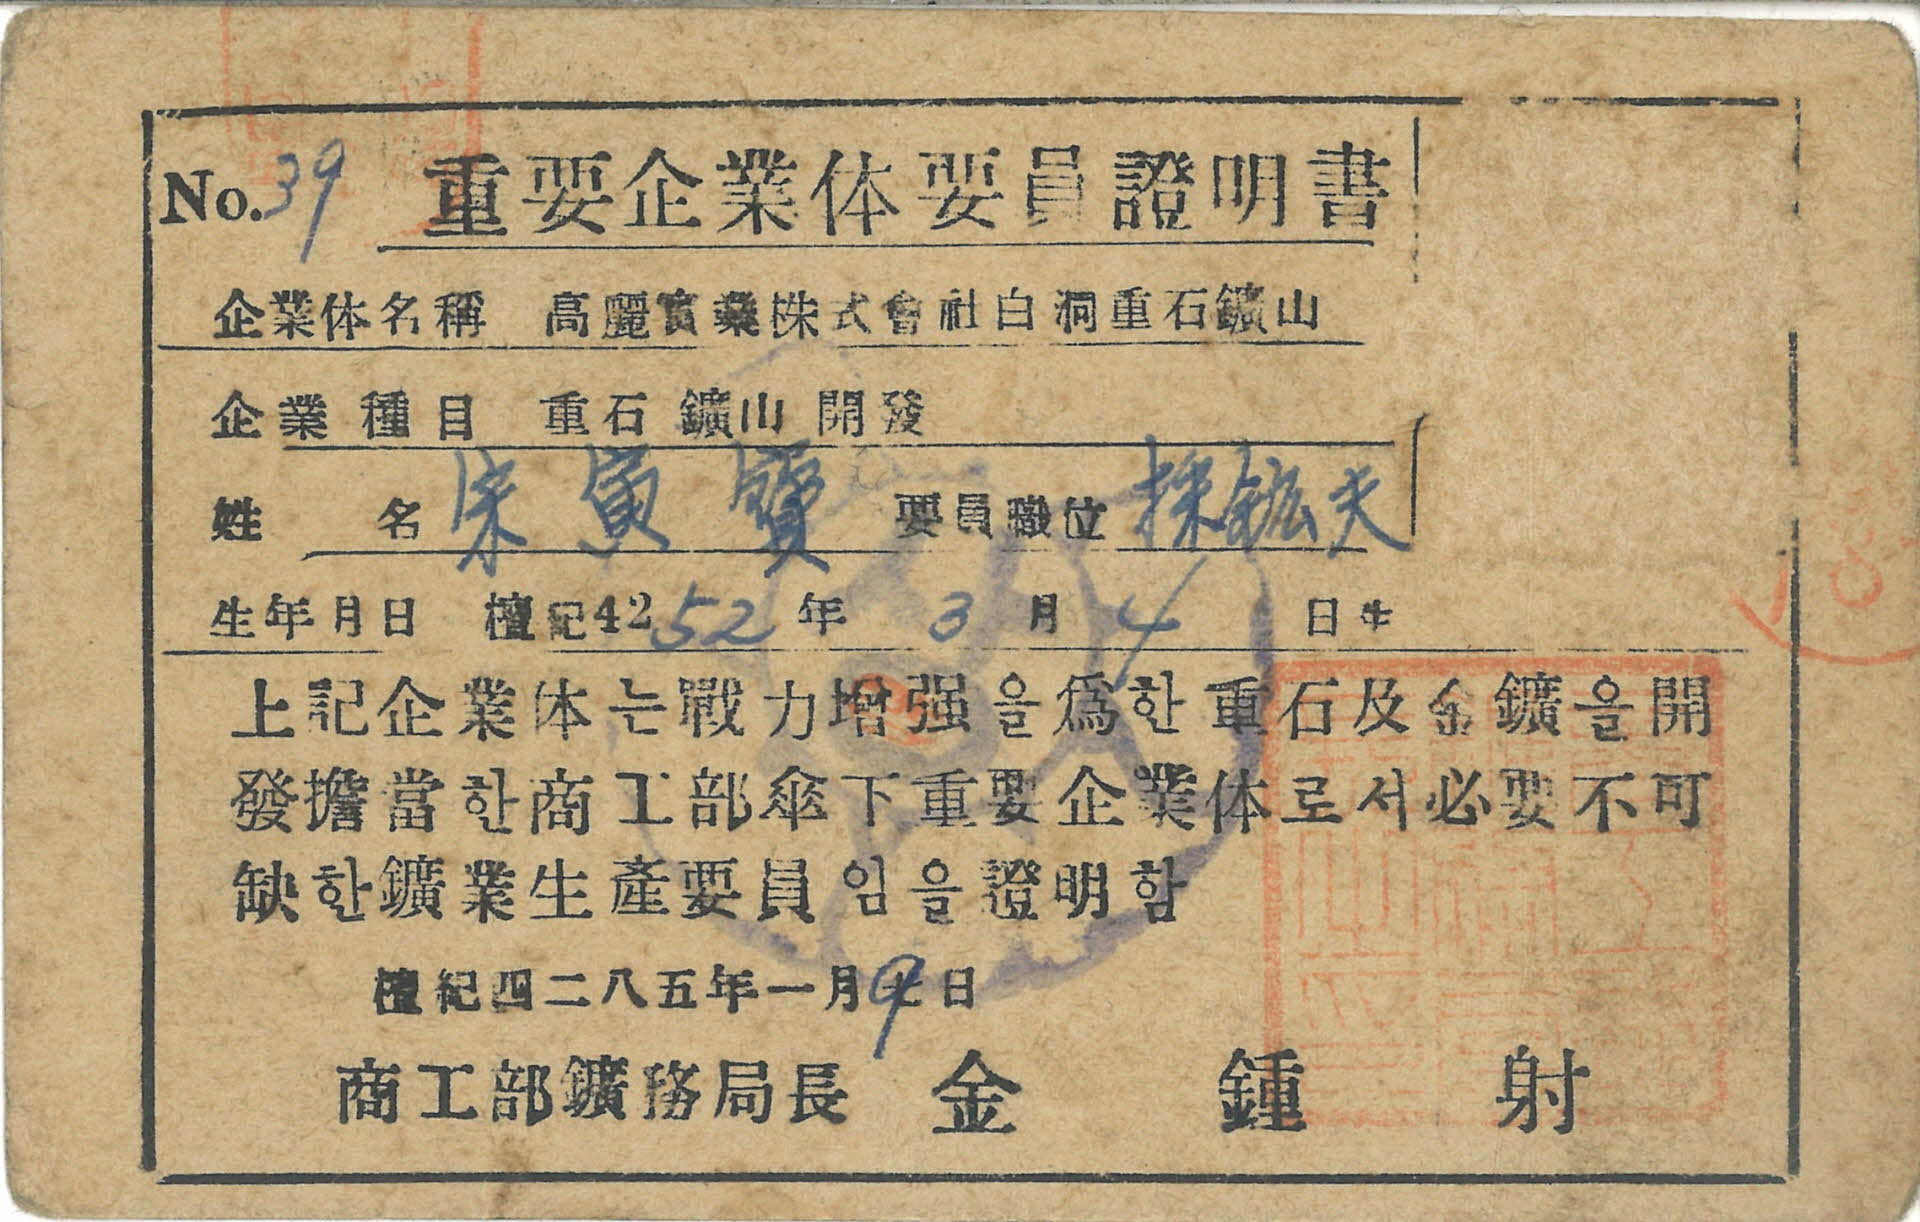 No.39 重要企業体要員證明書
企業体名稱 高麗實業株式會社白洞重石鑛山
企業種目 重石鑛山開發
姓名 宋寅寶 要員職位 採鉱夫
生年月日 檀紀4252年3月4日生
上記企業体는戰力增强을爲한重石及金鑛을開
發擔當한商工部傘下重要企業体로서必要不可
缺한鑛業生產要員임을證明함
檀紀四二八五年一月9日
商工部鑛務局長 金鍾射